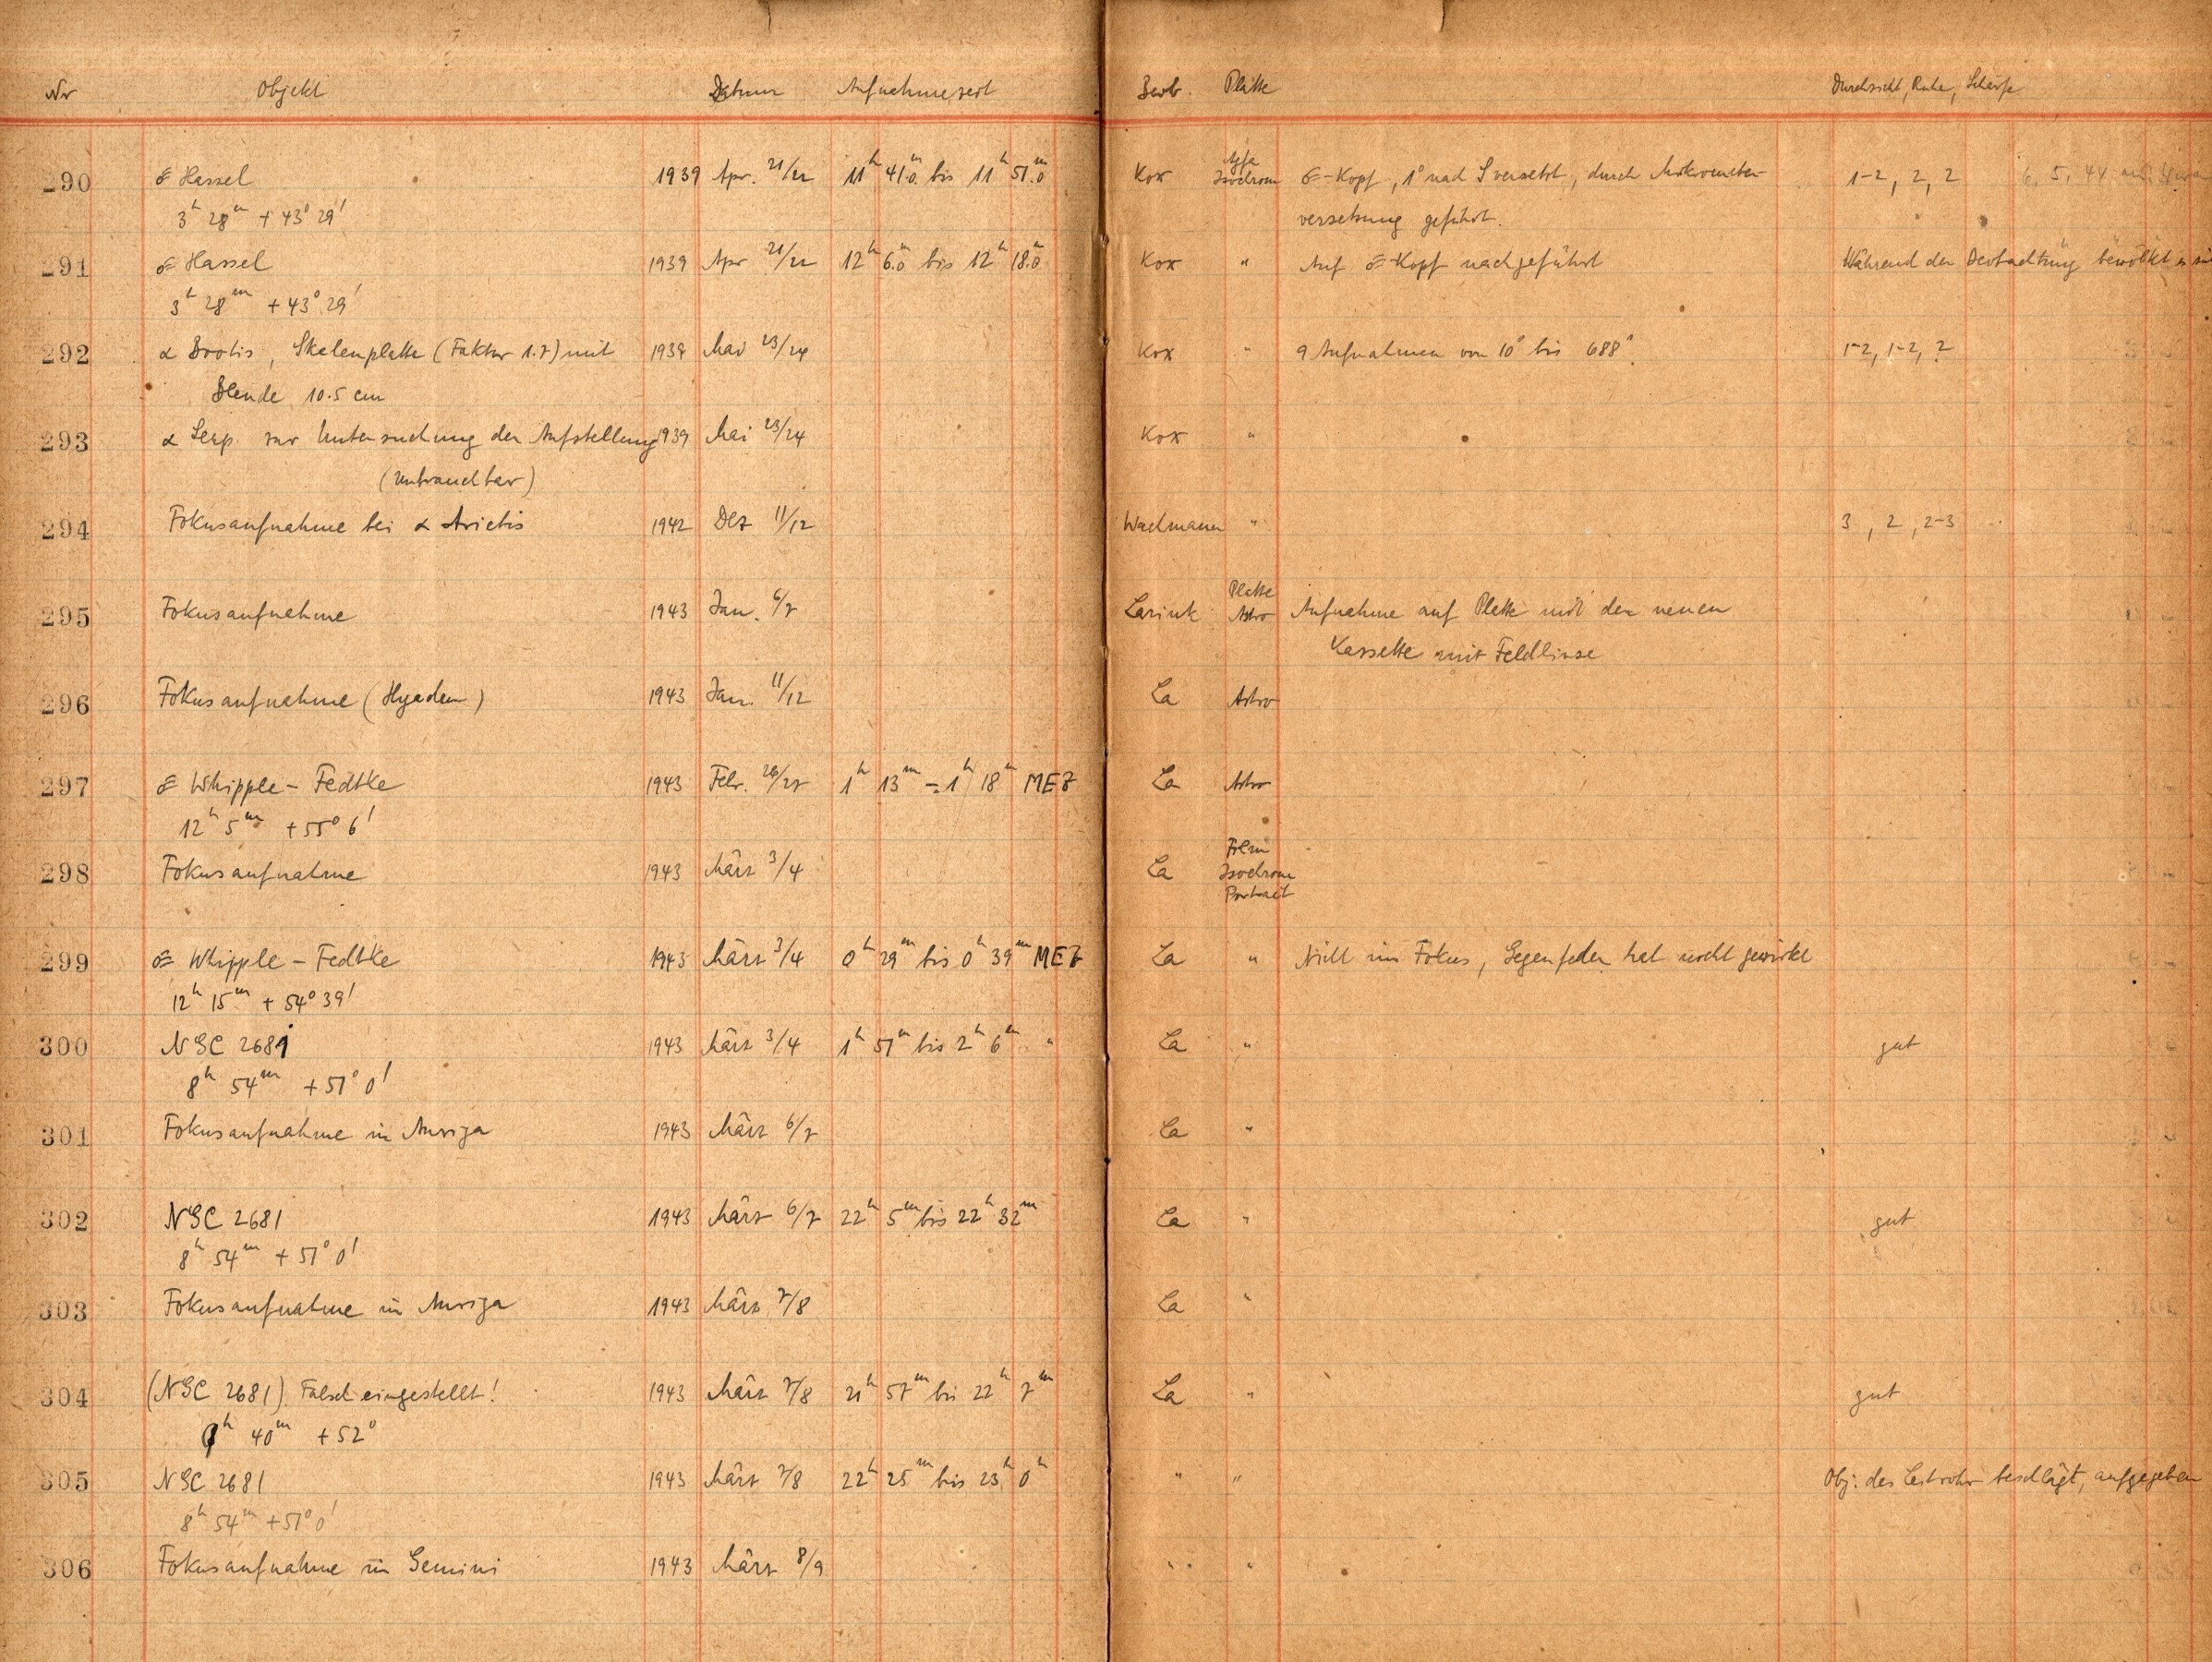 Nr Objekt Datum Aufnahmezeit Beob. Platte Durchsicht, Ruhe, Schärfe
290 ☄ Hassel 1939 Apr. 21/22 11h 41m.0 bis 11h 51m.0 Kox Agfa Isochrom ☄-Kopf, 1° nach S versetzt, durch Mikrometer- 1-2, 2, 2
3h 28m + 43° 29' versetzung geführt.
291 ☄ Hassel 1939 Apr 21/22 12h 6m.0 bis 12h 18m.0 Kox " Auf ☄-Kopf nachgeführt Während der Beobachtung bewölkt es
3h 28m + 43° 29'
292 α Bootis, Skalenplatte (Faktor 1.7) mit 1939 Mai 23/24 Kox " 9 Aufnahmen von 10s bis 688s. 1-2, 1-2, 2
Blende 10.5 cm
293 α Serp. zur Untersuchung der Aufstellung 1939 Mai 23/24 Kox "
(Unbrauchbar)
294 Fokusaufnahme bei α Arietis 1942 Dez 11/12 Wachmann " 3, 2, 2-3
295 Fokusaufnahme 1943 Jan. 6/7 Larink Platte Astro Aufnahme auf Platte mit der neuen
Kassette mit Feldlinse
296 Fokusaufnahme (Hyaden) 1943 Jan. 11/12 La Astro
297 ☄ Whipple - Fedtke 1943 Febr. 26/27 1h 13m - 1h 18m MEZ La Astro
12h 5m + 55° 6'
298 Fokusaufnahme 1943 März 3/4 La Film Isochrom Portrait
299 ☄ Whipple - Fedtke 1943 März 3/4 0h 29m bis 0h 39m MEZ La " Nicht im Fokus, Gegenfeder hat nicht gewirkt
12h 15m + 54° 39'
300 NGC 2681 1943 März 3/4 1h 51m bis 2h 6m " La " gut
8h 54m + 51° 0'
301 Fokusaufnahme in Auriga 1943 März 6/7 La "
302 NGC 2681 1943 März 6/7 22h 5m bis 22h 32m La " gut
8h 54m + 51° 0'
303 Fokusaufnahme in Auriga 1943 März 7/8 La "
304 (NGC 2681) Falsch eingestellt! 1943 März 7/8 21h 57m bis 22h 7m La " gut
40m + 52°
305 NGC 2681 1943 März 7/8 22h 25m bis 23h 0h " " Obj. des Leitrohr beschlägt, aufgegeben
8h 54m + 51° 0'
306 Fokusaufnahme in Gemini 1943 März 8/9 " "